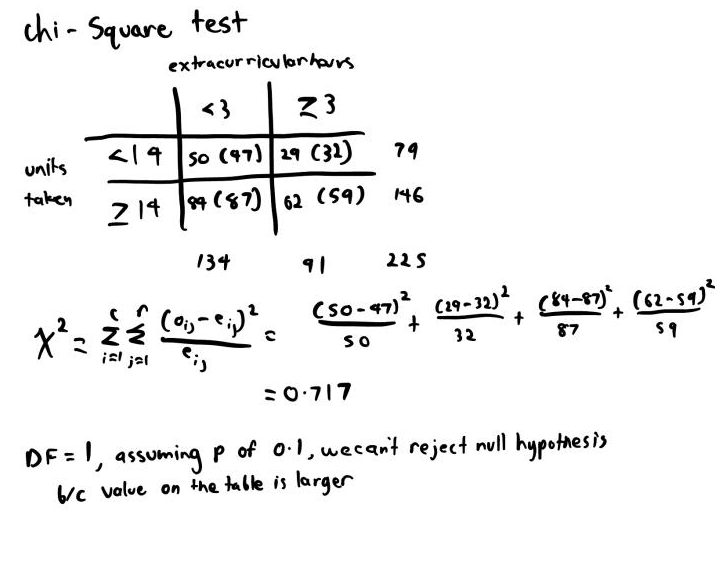 chi-Square test
extracurricular hours
<3 ≥3
units taken
<14 50 (47) 29 (32) 79
≥14 84 (87) 62 (59) 146
134 91 225
χ² = Σ_{i=1}^{c} Σ_{j=1}^{r} (o_ij - e_ij)² / e_ij = (50-47)²/50 + (29-32)²/32 + (84-87)²/87 + (62-59)²/59
= 0.717
DF = 1, assuming p of 0.1, we can't reject null hypothesis
b/c value on the table is larger